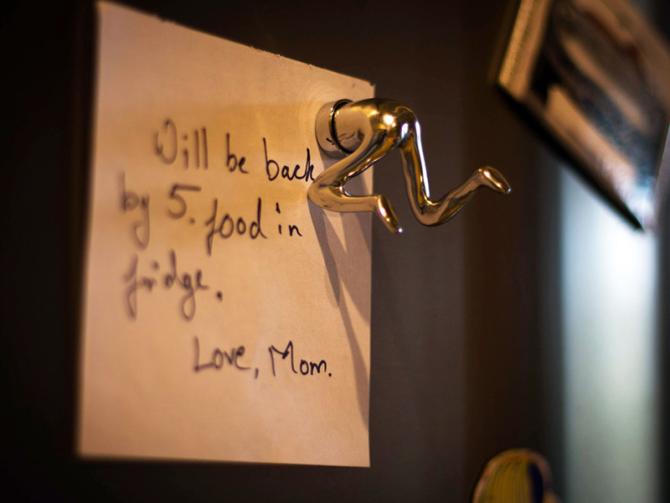 Will be back
by 5. food in
fridge.
Love, Mom.